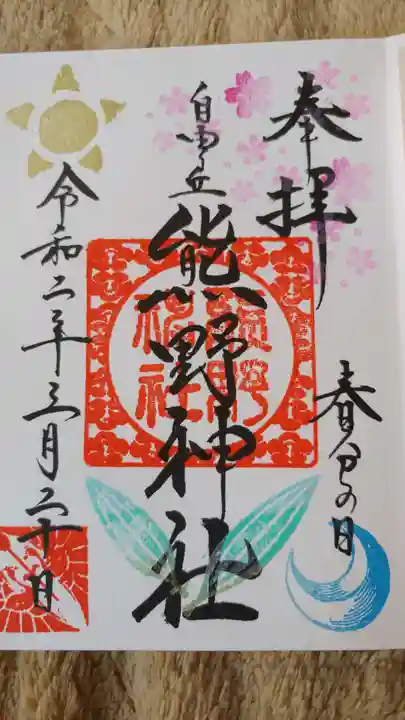 奉拝
春分の日
自由が丘
熊野神社
令和二年三月二十日